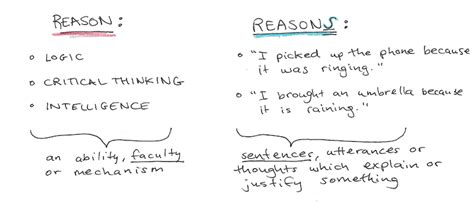 REASON:
• LOGIC
• CRITICAL THINKING
• INTELLIGENCE
an ability, faculty
or mechanism
REASONS:
• "I picked up the phone because
it was ringing."
• "I brought an umbrella because
it is raining."
sentences, utterances or
thoughts which explain or
justify something